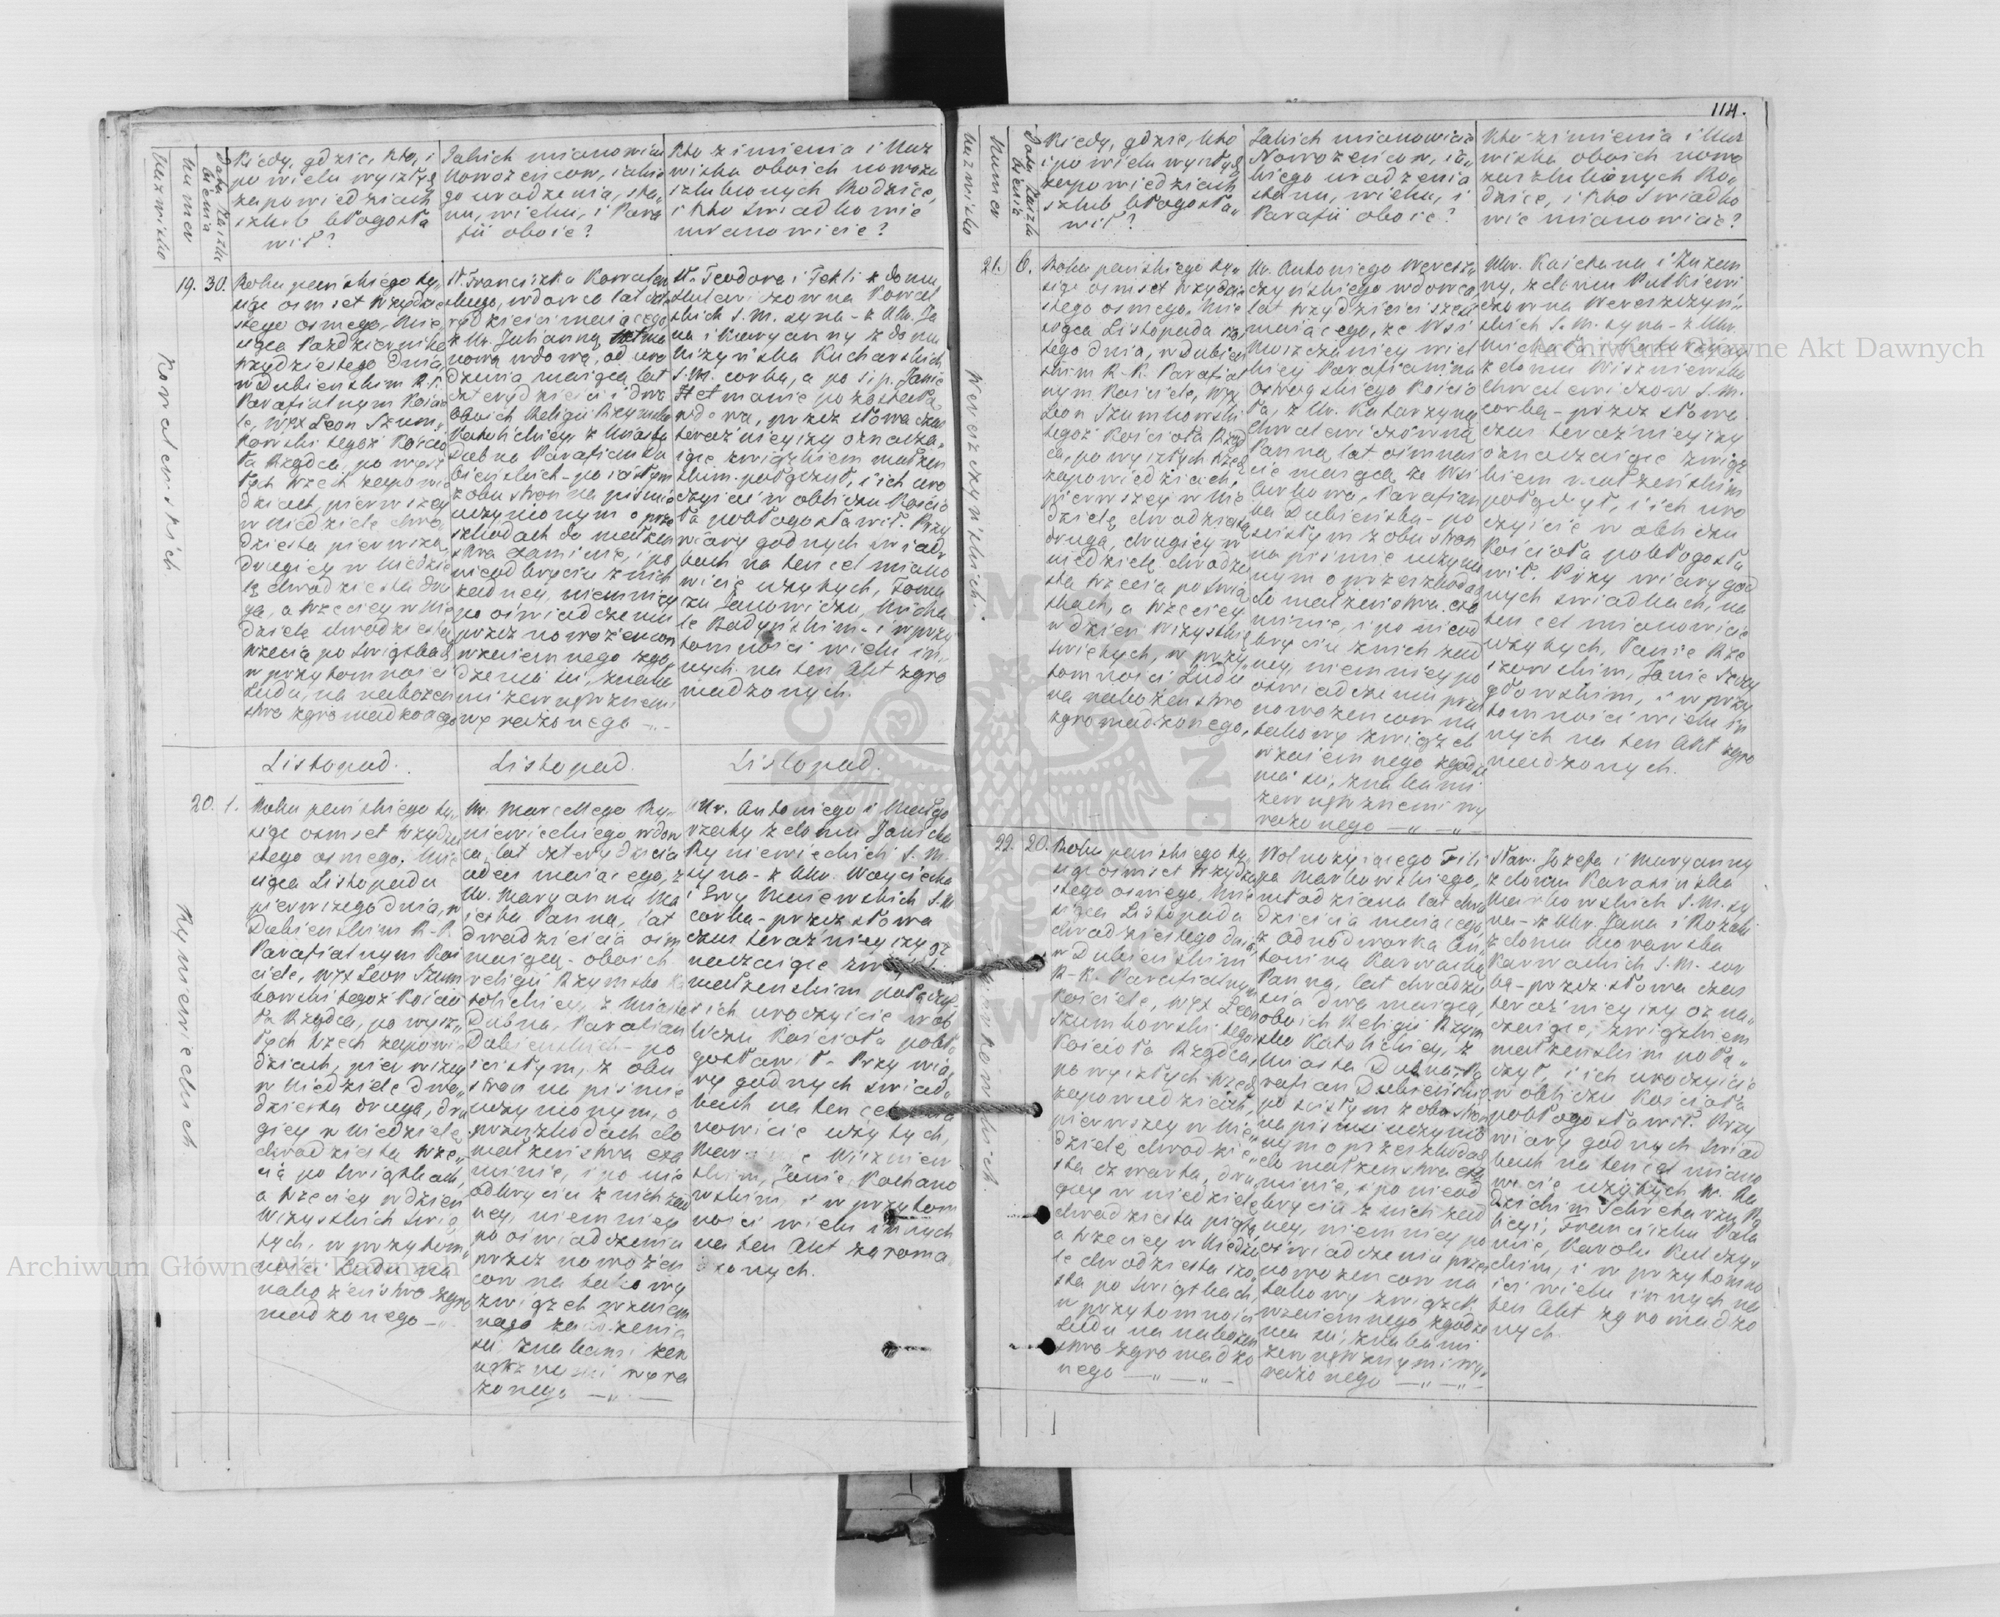 114.
Nazwisko
Numer
Data Kaszta
łcenia
Kiedy, gdzie, Kto, i
po wielu wyszłych
zapowiedziach
szlub błogosła
wił?
Jakich mianowicie
Nowożencow, iakie
go urodzenia, sta„
nu, wieku, i Para
fii oboie?
Kto z imienia i Naz
wiska oboich nowoza
szlubionych Rodzice,
i Kto Swiadkowie
mianowicie?
Kowalewskich
19. 30.
Roku pańskiego ty„
siąc osmset trzydzie
stego osmego, Mie
siąca Pazdziernika
trzydziestego Dnia
w Dubieńskim R. K.
Parafialnym Koście
le, WJX Leon Szum„
kowski tegoż Koscio
ła Rządca, po wysz
łych trzech zapowie
dziach, pierwszey
w Niedzielę dwa
dziesta pierwszą,
drugiey w Niedzie
lę dwadziesta dru
gą, a trzeciey w Nie
dzielę dwadziesta
trzecią po Swiątkach
w przytomnosci
Ludu, na nabożeń
stwo zgromadzonego
W. Franciszka Kowalew
skiego, wdowca lat czte
rydzieści maiącego
z Ur. Julianną Hetma
nową wdową, od uro
dzenia maiącą lat
czterydzieści i dwa
oboich Religii Rzymsko
Katolickiey, z Miasta
Dubna Parafian Du
bieńskich - po scisłym
z obu stron na pismie
uczynionym o prze
szkodach do małżeń
stwa examinie, i po
nieodkryciu z nich
żadney, niemniey
po oświadczeniu
przez nowożencow
wzaiemnego zgo„
dzenia się, znaka
mi zewnętrznemi
wyrażonego —„—
W. Teodora i Tekli z domu
Kowal
skich S. M. syna - z Ur. Ja
na i Maryanny z domu
Niżyńska Kucharskich
S. M. corka, a po ś. p. Janie
Hetmanie pozostała
wdowa, przez słowa czas
teraźnieyszy oznacza„
iące związkiem małżeń
skim połączył, i ich uro
czyście w obliczu Kościo
ła pobłogosławił. Przy
wiary godnych swiad
kach na ten cel miano
wicie użytych, Toma
szu Janowiczu, Micha
le Badyńskim - i w przy
tomności wielu in„
nych na ten Akt zgro
madzonych.
Listopad. Listopad. Listopad.
Ryniewieckich
20. 1.
Roku pańskiego ty„
siąc osmset trzydzie
stego osmego, Mie
siąca Listopada
pierwszego dnia, w
Dubieńskim R. K.
Parafialnym Koś
ciele, WJX Leon Szum
kowski tegoż Kościo
ła Rządca, po wysz„
łych trzech zapowie
dziach, pierwszey
w Niedzielę dwa„
dziesta drugą, dru
giey w Niedzielę
dwadziesta trze„
cią po Swiątkach,
a trzeciey w dzień
Wszystkich Swię
tych, w przytom„
ności Ludu na
nabożeństwo zgro
madzonego —„
Ur. Marcellego Ry„
niewieckiego wdow
ca, lat czterydzieści
maiącego, z
Ur. Maryanną Ma
iewską Panną, lat
dwadzieścia osm
maiącą - oboich
religii Rzymsko Ka
tolickiey, z Miasta
Dubna, Parafian
Dubieńskich - po
scisłym, z obu
stron na pismie
uczynionym, o
przeszkodach do
małżeństwa exa
minie, i po nie
odkryciu z nich żad
ney, niemniey
po oświadczeniu
przez nowożen
cow na takowy
związek wzaiem
nego zgodzenia
się znakami zew
nętrznemi wyra
żonego —„—
Ur. Antoniego i Małgo
rzaty z domu Janicka
Ryniewieckich S. M.
syna - z Ur. Woyciecha
i Ewy Maiewskich S. M.
corka - przez słowa
czas teraźnieyszy oz
naczaiące związkiem
małżenskim połączył
i ich uroczyście w ob
liczu Kościoła pobło
gosławił - Przy wia„
ry godnych swiad„
kach na ten cel mia
nowicie użytych,
Wiszniew
skim, Janie Kochano
wskim, i w przytom
ności wielu innych
na ten Akt zgroma
dzonych.
Nazwisko
Numer
Data Kaszta
łcenia
Kiedy, gdzie, Kto
i po wielu wyszłych
zapowiedziach
szlub błogosła„
wił?
Jakich mianowicie
Nowożencow, ia„
kiego urodzenia
stanu, wieku, i
Parafii oboie?
Kto z imienia i Naz
wiska oboich nowo
zaszlubionych Ro„
dzice, i Kto Swiadko
wie mianowicie?
Wereszczyńskich.
21. 6.
Roku pańskiego ty„
siąc osmset trzydzie
stego osmego, Mie
siąca Listopada szo
stego dnia, w Dubień
skim R. K. Parafial
nym Kościele, WJX
Leon Szumkowski
tegoż Kościoła Rząd
ca, po wyszłych trzech
zapowiedziach,
pierwszey w Nie
dzielę dwadziesta
drugą, drugiey w
niedzielę dwadzie
sta trzecią po Swiąt
kach, a trzeciey
w dzień Wszystkich
Swiętych, w przy„
tomności Ludu
na nabożeństwo
zgromadzonego,
Ur. Antoniego Weresz
czyńskiego wdowca
lat trzydzieści sześć
maiącego, ze Wsi
Moszczanicy wiel
kiey Parafianina
Ostrogskiego Koscio
ła, z Ur. Katarzyną
Chwalewiczowną
Panną, lat osmnaś
cie maiącą ze Wsi
Parafian
ka Dubieńska - po
scisłym z obu stron
na pismie uczynio
nym o przeszkodach
do małżeństwa exa
minie, i po nieod
kryciu z nich żad
ney, niemniey po
oświadczeniu przez
nowożencow na
takowy związek
wzaiemnego zgodze
nia się, znakami
zewnętrznemi wy
rażonego —„—„—
Ur. Kaietana i Zuzan
ny, z domu Rutkiewi
czowna Wereszczyń„
skich S. M. syna - z Ur.
Michała i Katarzyny
z domu Wiszniewska
Chwalewiczow S. M.
corką - przez słowa
czas teraźnieyszy
oznaczaiące związ
kiem małżeńskim
połączył, i ich uro
czyście w obliczu
Kościoła pobłogosła
wił. Przy wiary god
nych swiadkach, na
ten cel mianowicie
użytych, Pawle Rze
szowskim, Janie Szczy
głowskim, i w przy
tomności wielu in
nych na ten Akt zgro
madzonych.
Markowskich.
22. 20.
Roku pańskiego ty„
siąc osmset trzydzie
stego osmego, Mie
siąca Listopada
dwadziestego dnia,
w Dubieńskim
R. K. Parafialnym
Kościele, WJX Leon
Szumkowski tegoż
Kościoła Rządca,
po wyszłych trzech
zapowiedziach,
pierwszey w Nie„
dzielę dwadzie„
sta czwarta, dru
giey w niedzielę
dwadziesta piątą,
a trzeciey w Niedzie
lę dwadziesta szo„
sta po Swiątkach,
w przytomności
Ludu na nabożeń
stwo zgromadzo
nego —„—„—
Wolnożyiącego Fili
pa Markowskiego,
młodziana lat dwa
dzieścia maiącego,
z Odnodworką An„
toniną Karwacką
Panną, lat dwadzie
ścia dwa maiącą,
oboich Religii Rzym
sko Katolickiey, z
Miasta Dubna, Pa
rafian Dubieńskich
po scisłym z obu stron
na pismie uczynio
nym o przeszkodach
do małżeństwa exa
minie, i po nieod
kryciu z nich żad
ney, niemniey po
oświadczeniu przez
nowożencow na
takowy związek
wzaiemnego zgodze
nia się, znakami
zewnętrznymi wy„
rażonego —„—„—
Naw. Józefa i Maryanny
z domu Karasińska
Markowskich S. M. sy
na - z Ur. Jana i Rozalii
z domu Morawska
Karwackich S. M. cor
ką - przez słowa czas
teraźnieyszy ozna„
czaiące, związkiem
małżenskim połą„
czył, i ich uroczyście
w obliczu Kościoła
pobłogosławił. Przy
wiary godnych swiad
kach na ten cel miano
wicie użytych W. Ra
dzickim Sekretarzu Po
licyi, Franciszku Pala
mie, Karolu Kulczy„
ckim, i w przytomno
ści wielu innych na
ten Akt zgromadzo
nych.
Archiwum Główne Akt Dawnych
Archiwum Główne Akt Dawnych